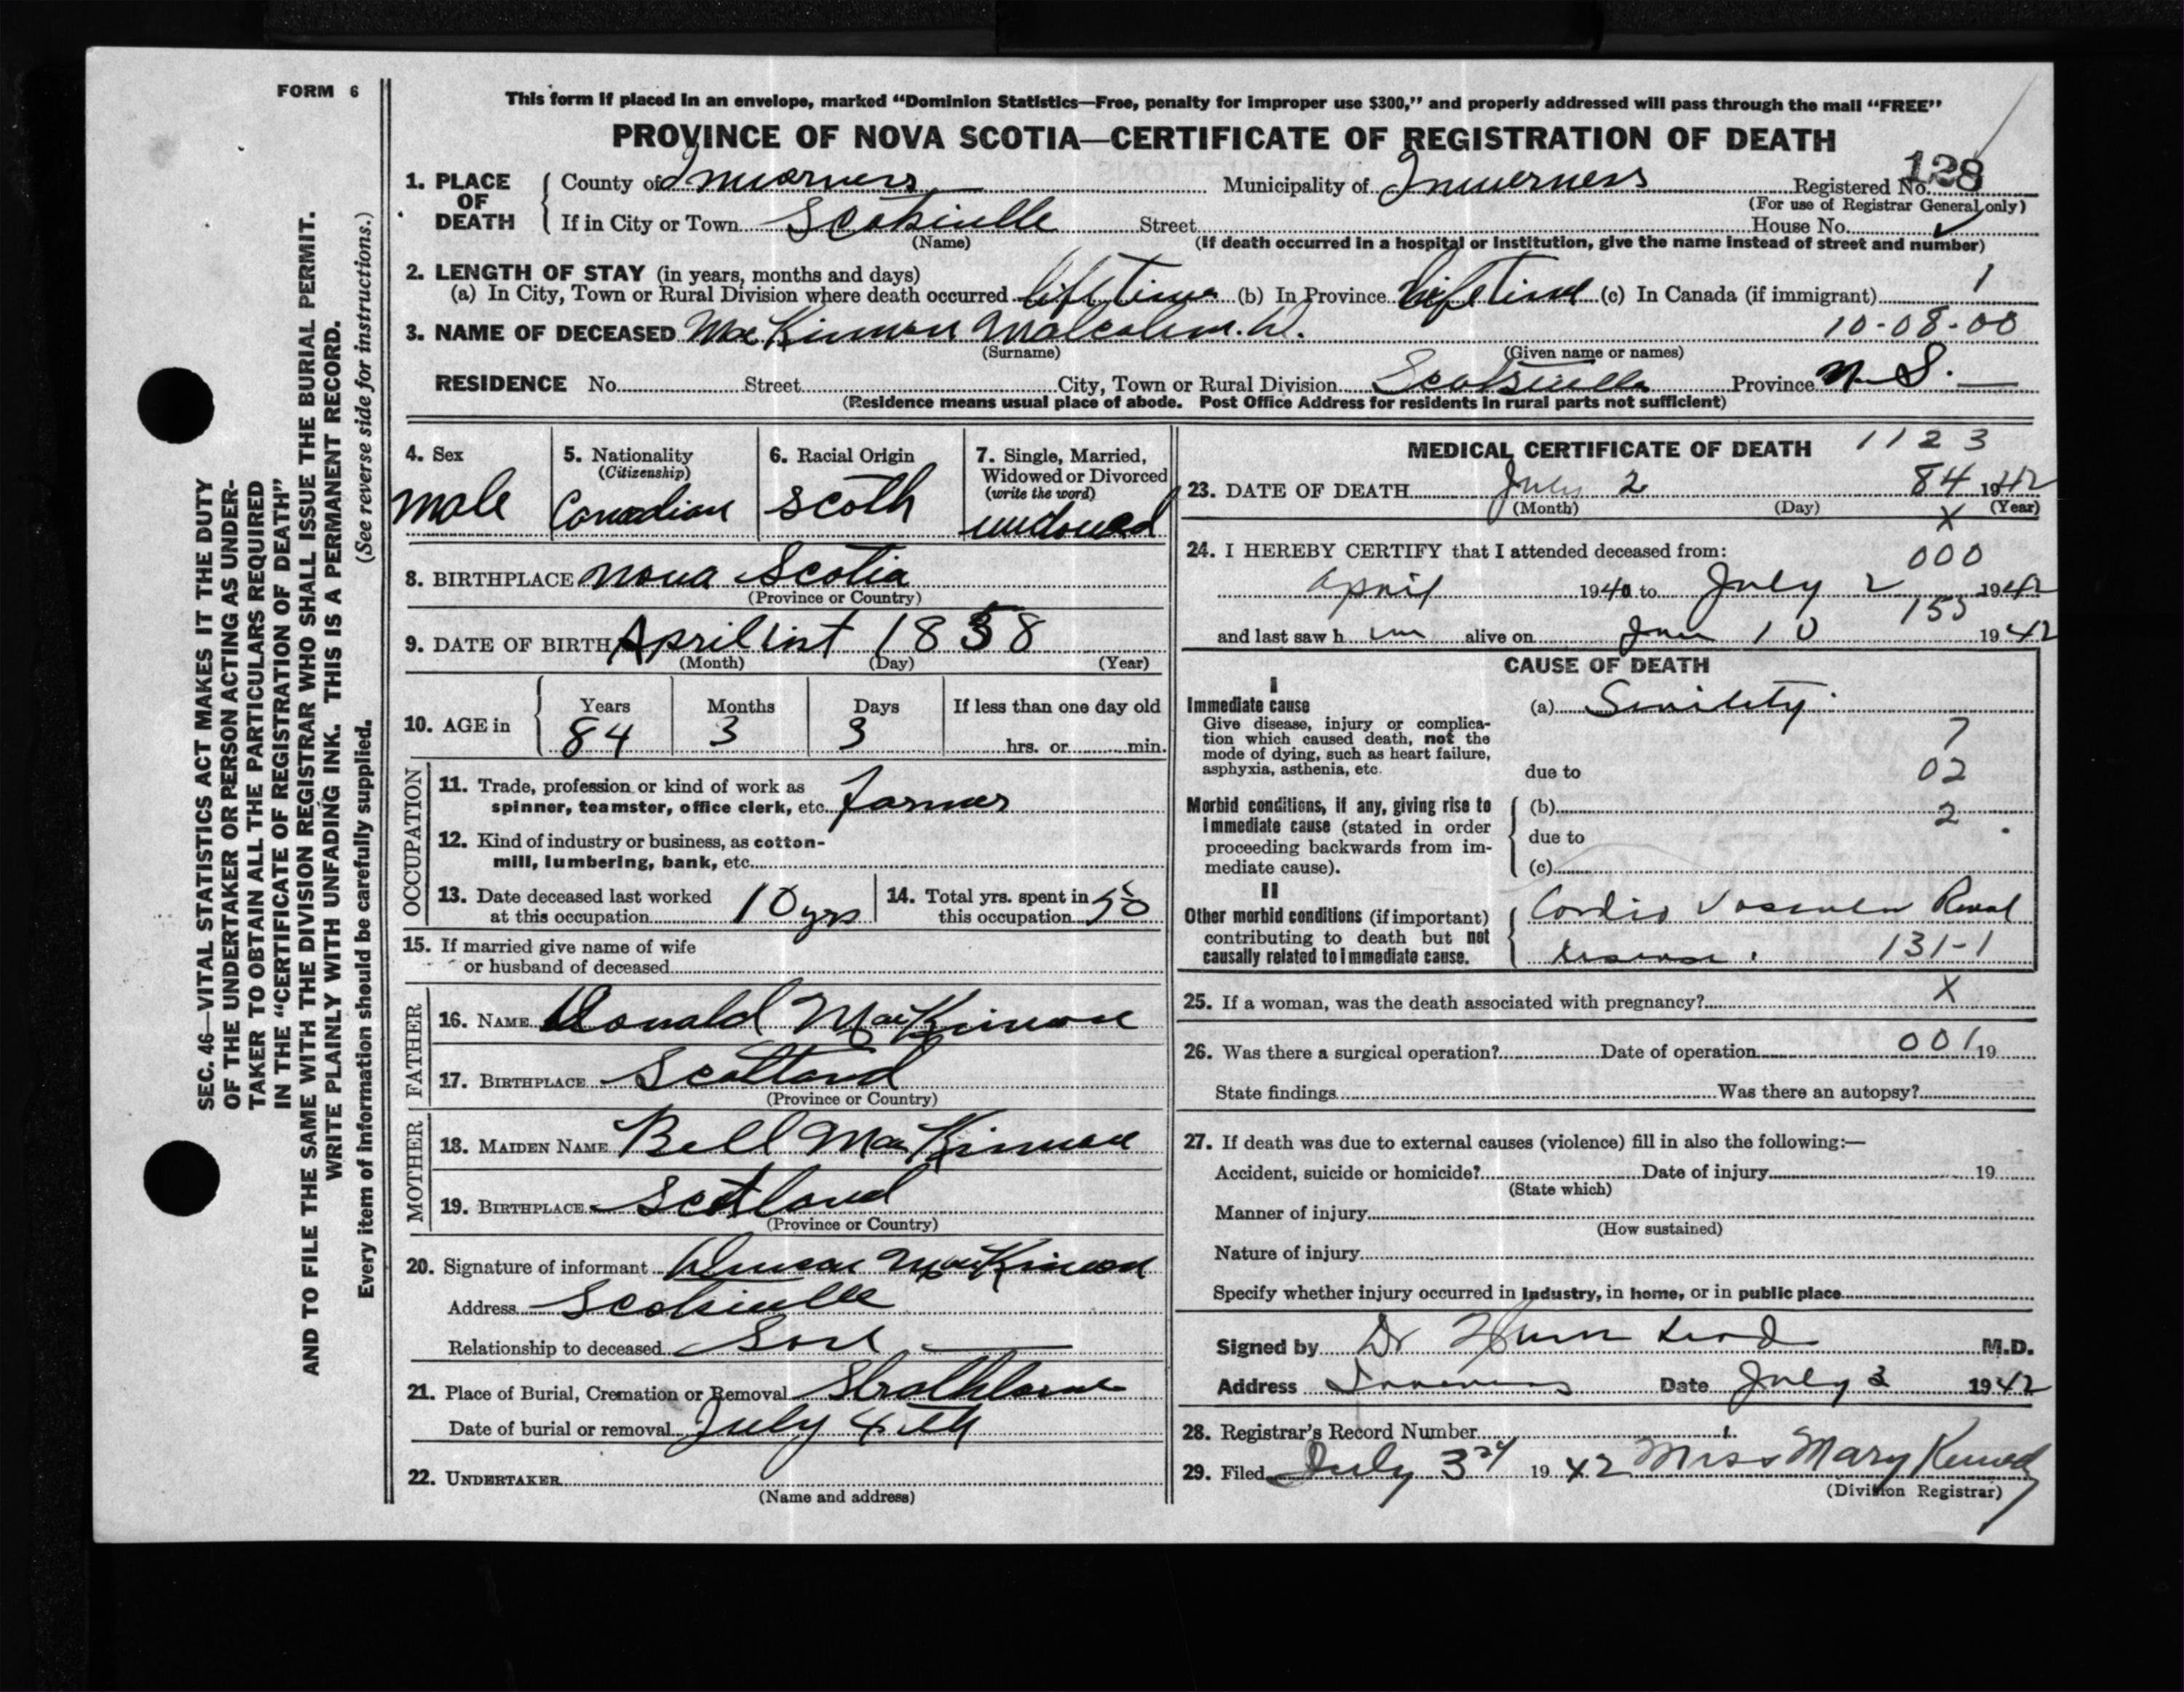 FORM 6
This form if placed in an envelope, marked “Dominion Statistics—Free, penalty for improper use $300,” and properly addressed will pass through the mail “FREE”
PROVINCE OF NOVA SCOTIA—CERTIFICATE OF REGISTRATION OF DEATH
128
1. PLACE OF DEATH
County of Inverness Municipality of Inverness Registered No.
(For use of Registrar General only)
If in City or Town Scotsville Street House No.
(Name) (If death occurred in a hospital or institution, give the name instead of street and number)
2. LENGTH OF STAY (in years, months and days)
(a) In City, Town or Rural Division where death occurred lifetime (b) In Province lifetime (c) In Canada (if immigrant) 1
3. NAME OF DECEASED MacKinnon Malcolm. 10-08-00
(Surname) (Given name or names)
RESIDENCE No. Street City, Town or Rural Division Scotsville Province N.S.
(Residence means usual place of abode. Post Office Address for residents in rural parts not sufficient)
4. Sex
male
5. Nationality
(Citizenship)
Canadian
6. Racial Origin
scoth
7. Single, Married,
Widowed or Divorced
(write the word)
widowed
8. BIRTHPLACE Nova Scotia
(Province or Country)
9. DATE OF BIRTH April 1st 1858
(Month) (Day) (Year)
10. AGE in
Years Months Days If less than one day old
84 3 3 hrs. or min.
OCCUPATION
11. Trade, profession or kind of work as
spinner, teamster, office clerk, etc. farmer
12. Kind of industry or business, as cotton-
mill, lumbering, bank, etc.
13. Date deceased last worked
at this occupation 10 yrs
14. Total yrs. spent in
this occupation 50
15. If married give name of wife
or husband of deceased
FATHER
16. NAME Donald MacKinnon
17. BIRTHPLACE Scotland
(Province or Country)
MOTHER
18. MAIDEN NAME Bell MacKinnon
19. BIRTHPLACE Scotland
(Province or Country)
20. Signature of informant Duncan MacKinnon
Address Scotsville
Relationship to deceased Son
21. Place of Burial, Cremation or Removal Strathlorne
Date of burial or removal July 4th
22. UNDERTAKER
(Name and address)
MEDICAL CERTIFICATE OF DEATH 1123
23. DATE OF DEATH July 2 84 1942
(Month) (Day) (Year)
X
24. I HEREBY CERTIFY that I attended deceased from:
000
April 1940 to July 2 1942
155
and last saw h im alive on Jun 10 1942
CAUSE OF DEATH
I
Immediate cause
Give disease, injury or complica-
tion which caused death, not the
mode of dying, such as heart failure,
asphyxia, asthenia, etc.
(a) Senility
7
due to 02
Morbid conditions, if any, giving rise to
immediate cause (stated in order
proceeding backwards from im-
mediate cause).
(b)
2
due to
(c)
II
Other morbid conditions (if important)
contributing to death but not
causally related to immediate cause.
Cardio Vascular Renal
disease. 131-1
25. If a woman, was the death associated with pregnancy? X
26. Was there a surgical operation? Date of operation 001 19
State findings Was there an autopsy?
27. If death was due to external causes (violence) fill in also the following:—
Accident, suicide or homicide? Date of injury 19
(State which)
Manner of injury
(How sustained)
Nature of injury
Specify whether injury occurred in Industry, in home, or in public place
Signed by Dr M.D.
Address Inverness Date July 3 1942
28. Registrar's Record Number
29. Filed July 3rd 1942 Miss Mary Kennedy
(Division Registrar)
SEC. 46—VITAL STATISTICS ACT MAKES IT THE DUTY
OF THE UNDERTAKER OR PERSON ACTING AS UNDER-
TAKER TO OBTAIN ALL THE PARTICULARS REQUIRED
IN THE “CERTIFICATE OF REGISTRATION OF DEATH”
AND TO FILE THE SAME WITH THE DIVISION REGISTRAR WHO SHALL ISSUE THE BURIAL PERMIT.
WRITE PLAINLY WITH UNFADING INK. THIS IS A PERMANENT RECORD.
Every item of information should be carefully supplied. (See reverse side for instructions.)